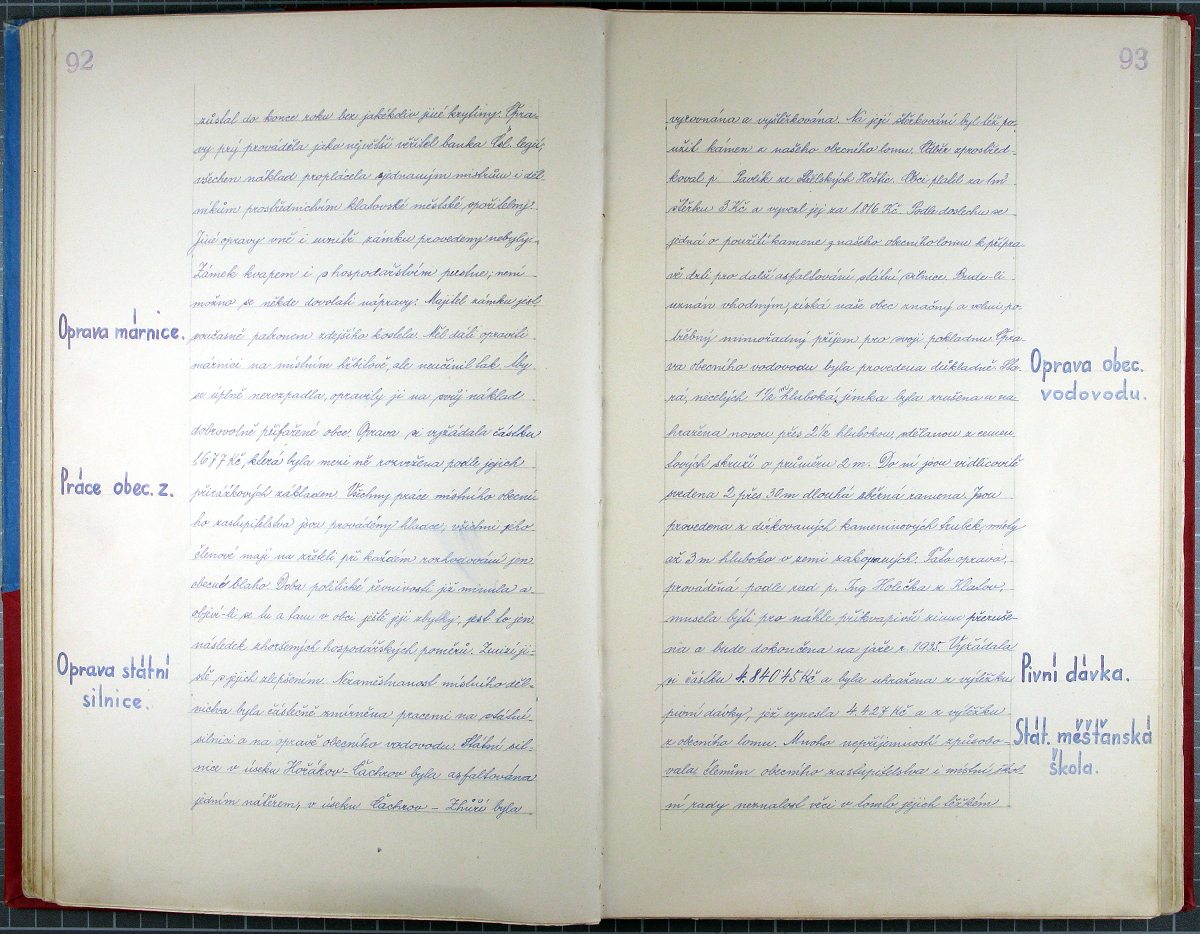 92
zůstal do konce roku bez jakékoliv jiné krytiny. Opra-
vy prý prováděla jako největší věřitel banka Čsl. legií,
všechen náklad proplácela sjednaným mistrům i děl-
níkům prostřednictvím klatovské městské spořitelny.
Jiné opravy vně i uvnitř zámku provedeny nebyly.
Zámek kvapem i s hospodářstvím pustne; není
možno se někde dovolati nápravy. Majitel zámku jest
Oprava márnice.
současně patronem zdejšího kostela. Měl dáti opraviti
márnici na místním hřbitově, ale neučinil tak. Aby
se úplně nerozpadla, opravily ji na svůj náklad
dobrovolně přifařené obce. Oprava si vyžádala částku
1.677 Kč, která byla mezi ně rozvržena podle jejich
Práce obec. z.
přirážkových základen. Všechny práce místního obecní-
ho zastupitelstva jsou prováděny hladce, všichni jeho
členové mají na zřeteli při každém rozhodování jen
obecné blaho. Doba politické řevnivosti již minula a
objeví-li se tu a tam v obci ještě její zbytky, jest to jen
následek zhoršených hospodářských poměrů. Zmizí ji-
Oprava státní
silnice.
stě s jejich zlepšením. Nezaměstnanost místního děl-
nictva byla částečně zmírněna pracemi na státní
silnici a na opravě obecního vodovodu. Státní sil-
nice v úseku Hořákov – Čachrov byla asfaltována
jedním nátěrem, v úseku Čachrov – Zhůří byla
93
vyrovnána a vyštěrkována. Na její štěrkování byl též po-
užit kámen z našeho obecného lomu. Odběr zprostřed-
koval p. Pavlík ze Střelských Hoštic. Obci platil za 1m³
štěrku 3 Kč a vyvezl jej za 1.816 Kč. Podle doslechu se
jedná o použití kamene z našeho obecního lomu k přípra-
vě drti pro další asfaltování státní silnice. Bude-li
uznán vhodným, získá naše obec značný a velmi po-
třebný mimořádný příjem pro svoji pokladnu. Opra-
Oprava obec.
vodovodu.
va obecního vodovodu byla provedena důkladně. Sta-
rá, necelých 1½ m hluboká, jímka byla zrušena a na-
hražena novou přes 2½ hlubokou, sdělanou z cemen-
tových skruží o průměru 2 m. Do ní jsou vidlicovitě
svedena 2 přes 30 m dlouhá sběrná ramena. Jsou
provedena z dírkovaných kameninových trubek, místy
až 3 m hluboko v zemi zakopaných. Tato oprava,
prováděná podle rad p. Ing Holečka z Klatov,
musela býti pro náhle přikvapivší zimu přeruše-
na a bude dokončena na jaře r. 1935. Vyžádala
Pivní dávka.
si částku 4.840·45 Kč a byla uhražena z výtěžku
pivní dávky, jež vynesla 4.427 Kč a z výtěžku
Stát. měšťanská
škola.
z obecního lomu. Mnoho nepříjemností způsobo-
vala členům obecního zastupitelstva i místní škol-
ní rady neznalost věci v tomto jejich těžkém